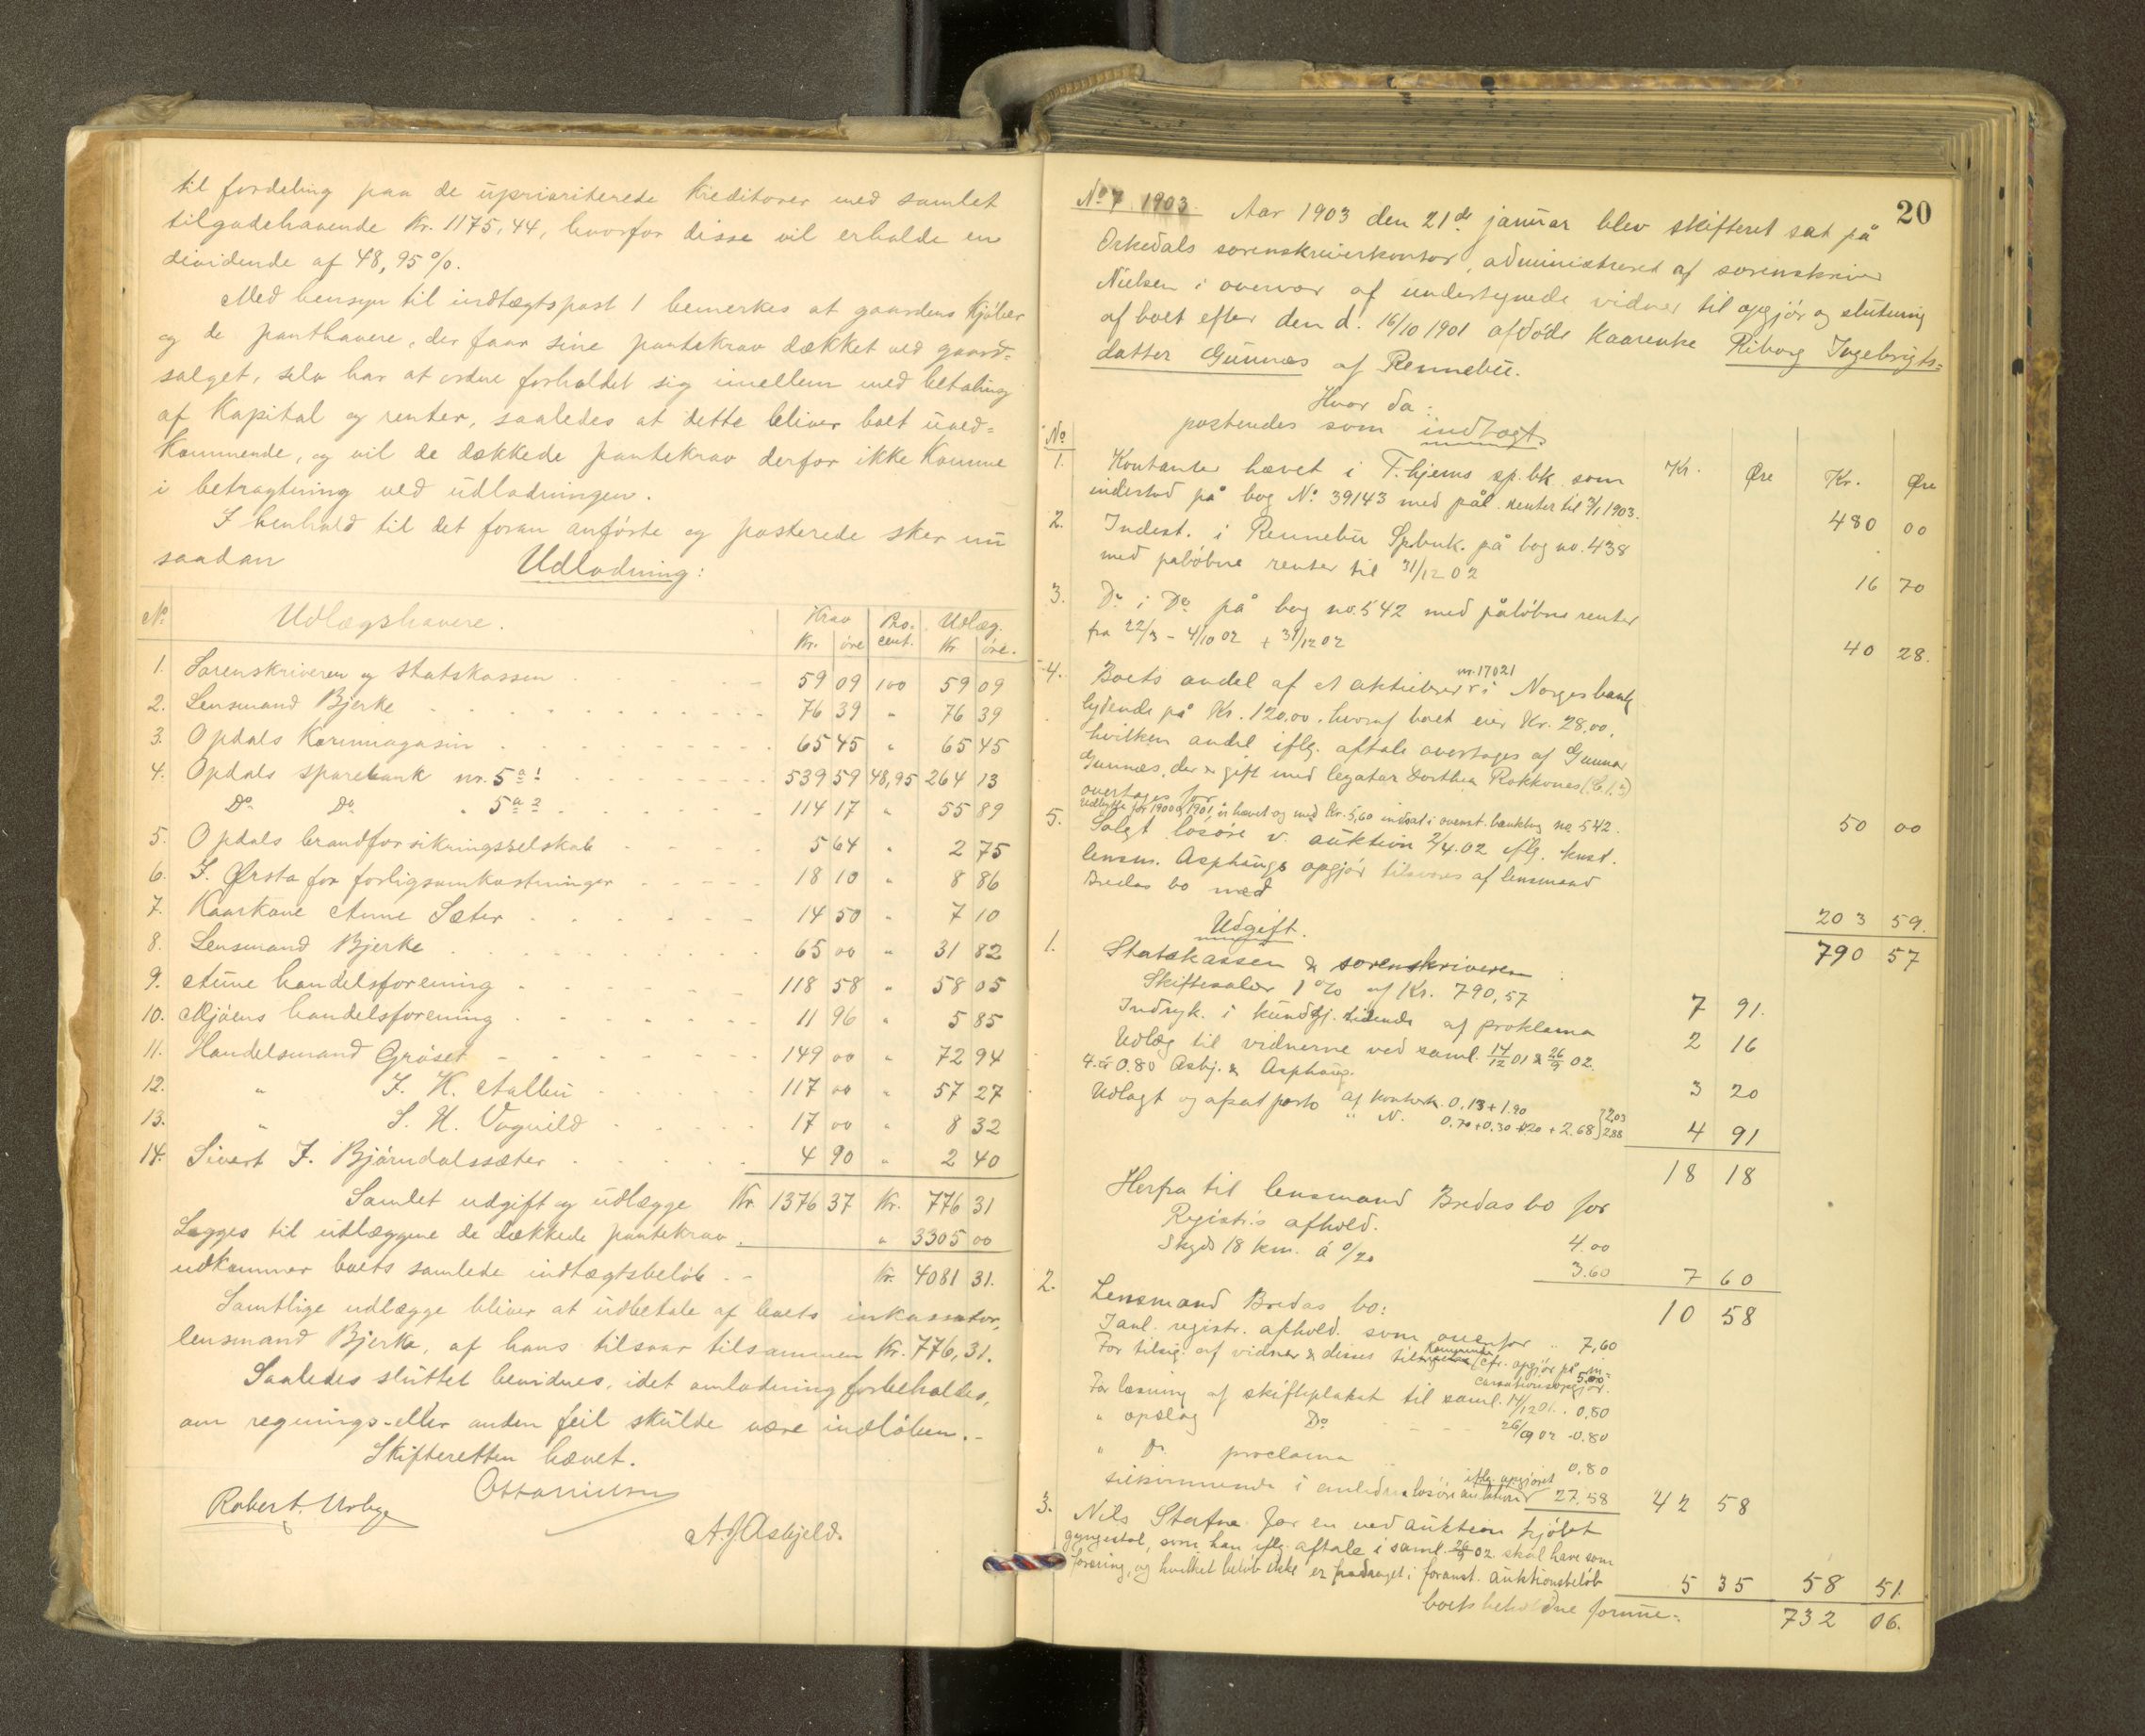 til fordeling paa de upriariterede kreditorer med samlet
tilgodehavende Kr. 1175,44, hvorfor disse vil erholde en
dividende af 48,95 %.
Med hensyn til indtægtspost 1 bemerkes at gaardens kjøber
og de panthavere, der faar sine pantekrav dækket ved gaard-
salget, selv har at ordne forholdet sig imellem med betaling
af Kapital og renter, saaledes at dette bliver boet uved-
kommende, og vil de dækkede pantekrav derfor ikke komme
i betragtning ved udlodningen.
I henhold til det foran anførte og posterede sker nu
saadan Udlodning:
No Udlægshavere. Krav Pro- Udlæg.
Kr. øre cent. Kr øre.
1. Sorenskriveren og Statskassen 59 09 100 59 09
2. Lensmand Bjerke 76 39 " 76 39
3. Opdals Kornmagasin 65 45 " 65 45
4. Opdals sparebank nr. 5 a 1 539 59 48,95 264 13
Do Do " 5 a 2 114 17 " 55 89
5. Opdals brandforsikringsselskab 5 64 " 2 75
6. J. Ørsta for forligsomkostninger 18 10 " 8 86
7. Kaarkone Anne Sæter 14 50 " 7 10
8. Lensmand Bjerke 65 00 " 31 82
9. Aune handelsforening 118 58 " 58 05
10. Mjøens handelsforening 11 96 " 5 85
11. Handelsmand Grøset 149 00 " 72 94
12. " J. K. Aalbu 117 00 " 57 27
13. " S. H. Vognild 17 00 " 8 32
14. Sivert J. Bjørndalssæter 4 90 " 2 40
Samlet udgift og udlægge Kr. 1376 37 Kr. 776 31
Lægges til udlæggene de dækkede pantekrav " 3305 00
udkommer boets samlede indtægtsbeløb Kr. 4081 31.
Samtlige udlægge bliver at udbetale af boets inkassator,
lensmand Bjerke, af hans tilsvar tilsammen Kr. 776,31.
Saaledes sluttet bevidnes, idet omlodning forbeholdes,
om regnings- eller anden feil skulde være indløben.-
Skifteretten hævet.
A. J. Asbjeld.
20
No 7 1903. Aar 1903 den 21de januar blev skifteret sat på
Orkedals sorenskriverkontor, administreret af sorenskriver
Nielsen i overvær af undertegnede vidner til opgjør og slutning
af boet efter den d. 16/10 1901 afdøde Kaarenke Riborg Ingebrigts-
datter Gunnes af Rennebu.
Hvor da:
posteredes som indtægt.
No Kr. Øre Kr. Øre
1. Kontanter hævet i T.hjems sp.bk. som
indestod på bog No 39143 med pål. renter til 2/1 1903. 480 00
2. Indest. i Rennebu Sp.bnk. på bog no. 438
med paløbne renter til 31/12 02 16 70
3. Do i Do på bog no. 542 med påløbne renter
fra 22/3 - 4/10 02 + 31/12 02 40 28.
4. Boets andel af et aktiebrev nr. 17021 i Norges bank
lydende på Kr. 120,00, hvoraf boet eier Kr. 28,00,
hvilken andel iflg. aftale overtages af Gunnar
Gunnes, der er gift med legatar Dorthea Rokkones
overtages for
Udbytte for 1900 & 1901, er hævet og med Kr. 5,60 indsat i ovennt. bankbog no 542. 50 00
5. Solgt løsøre v. auktion 2/4.02 iflg. konst.
lensm. Asphaugs opgjør tilsvares af lensmand
Bredes bo med 203 59.
790 57
Udgift.
1. Statskassen & sorenskriveren:
Skiftesalær 1 % af Kr. 790,57 7 91.
Indryk. i kundgj. tidende af proklama 2 16
Udlæg til vidnerne ved saml. 14/12 01 & 26/9 02.
4. á 0.80 Asbj. & Asphaug. 3 20
Udlagt og afsat porto af kontork. 0.13 + 1.90 } 2,03
" N. 0.70 + 0.30 + 2.68 4 91
18 18
Herfra til lensmand Bredes bo for
Registr.s afhold. 4.00
Skyds 18 km. á 0/20 3.60 7 60
10 58
2. Lensmand Bredes bo:
I anl. registr. afhold. som ovenfor " 7,60
For tilsig. af vidner & disses
5,00
For læsning af skifteplakat til saml. 14/12 01. 0,80
" opslag Do 26/9 02 0.80
" Do proclama 0,80
tilkommende i anledn. løsøreauktion iflg. opgjøret 27,58 42 58
3. Nils Stafne for en ved auktion kjøbt
gyngestol, som han iflg. aftale i saml. 26/9 02 skal have som
foræring, og hvilket beløb ikke er fradraget i foranst. auktionsbeløb 5 35 58 51.
boets beholdne formue: 732 06.